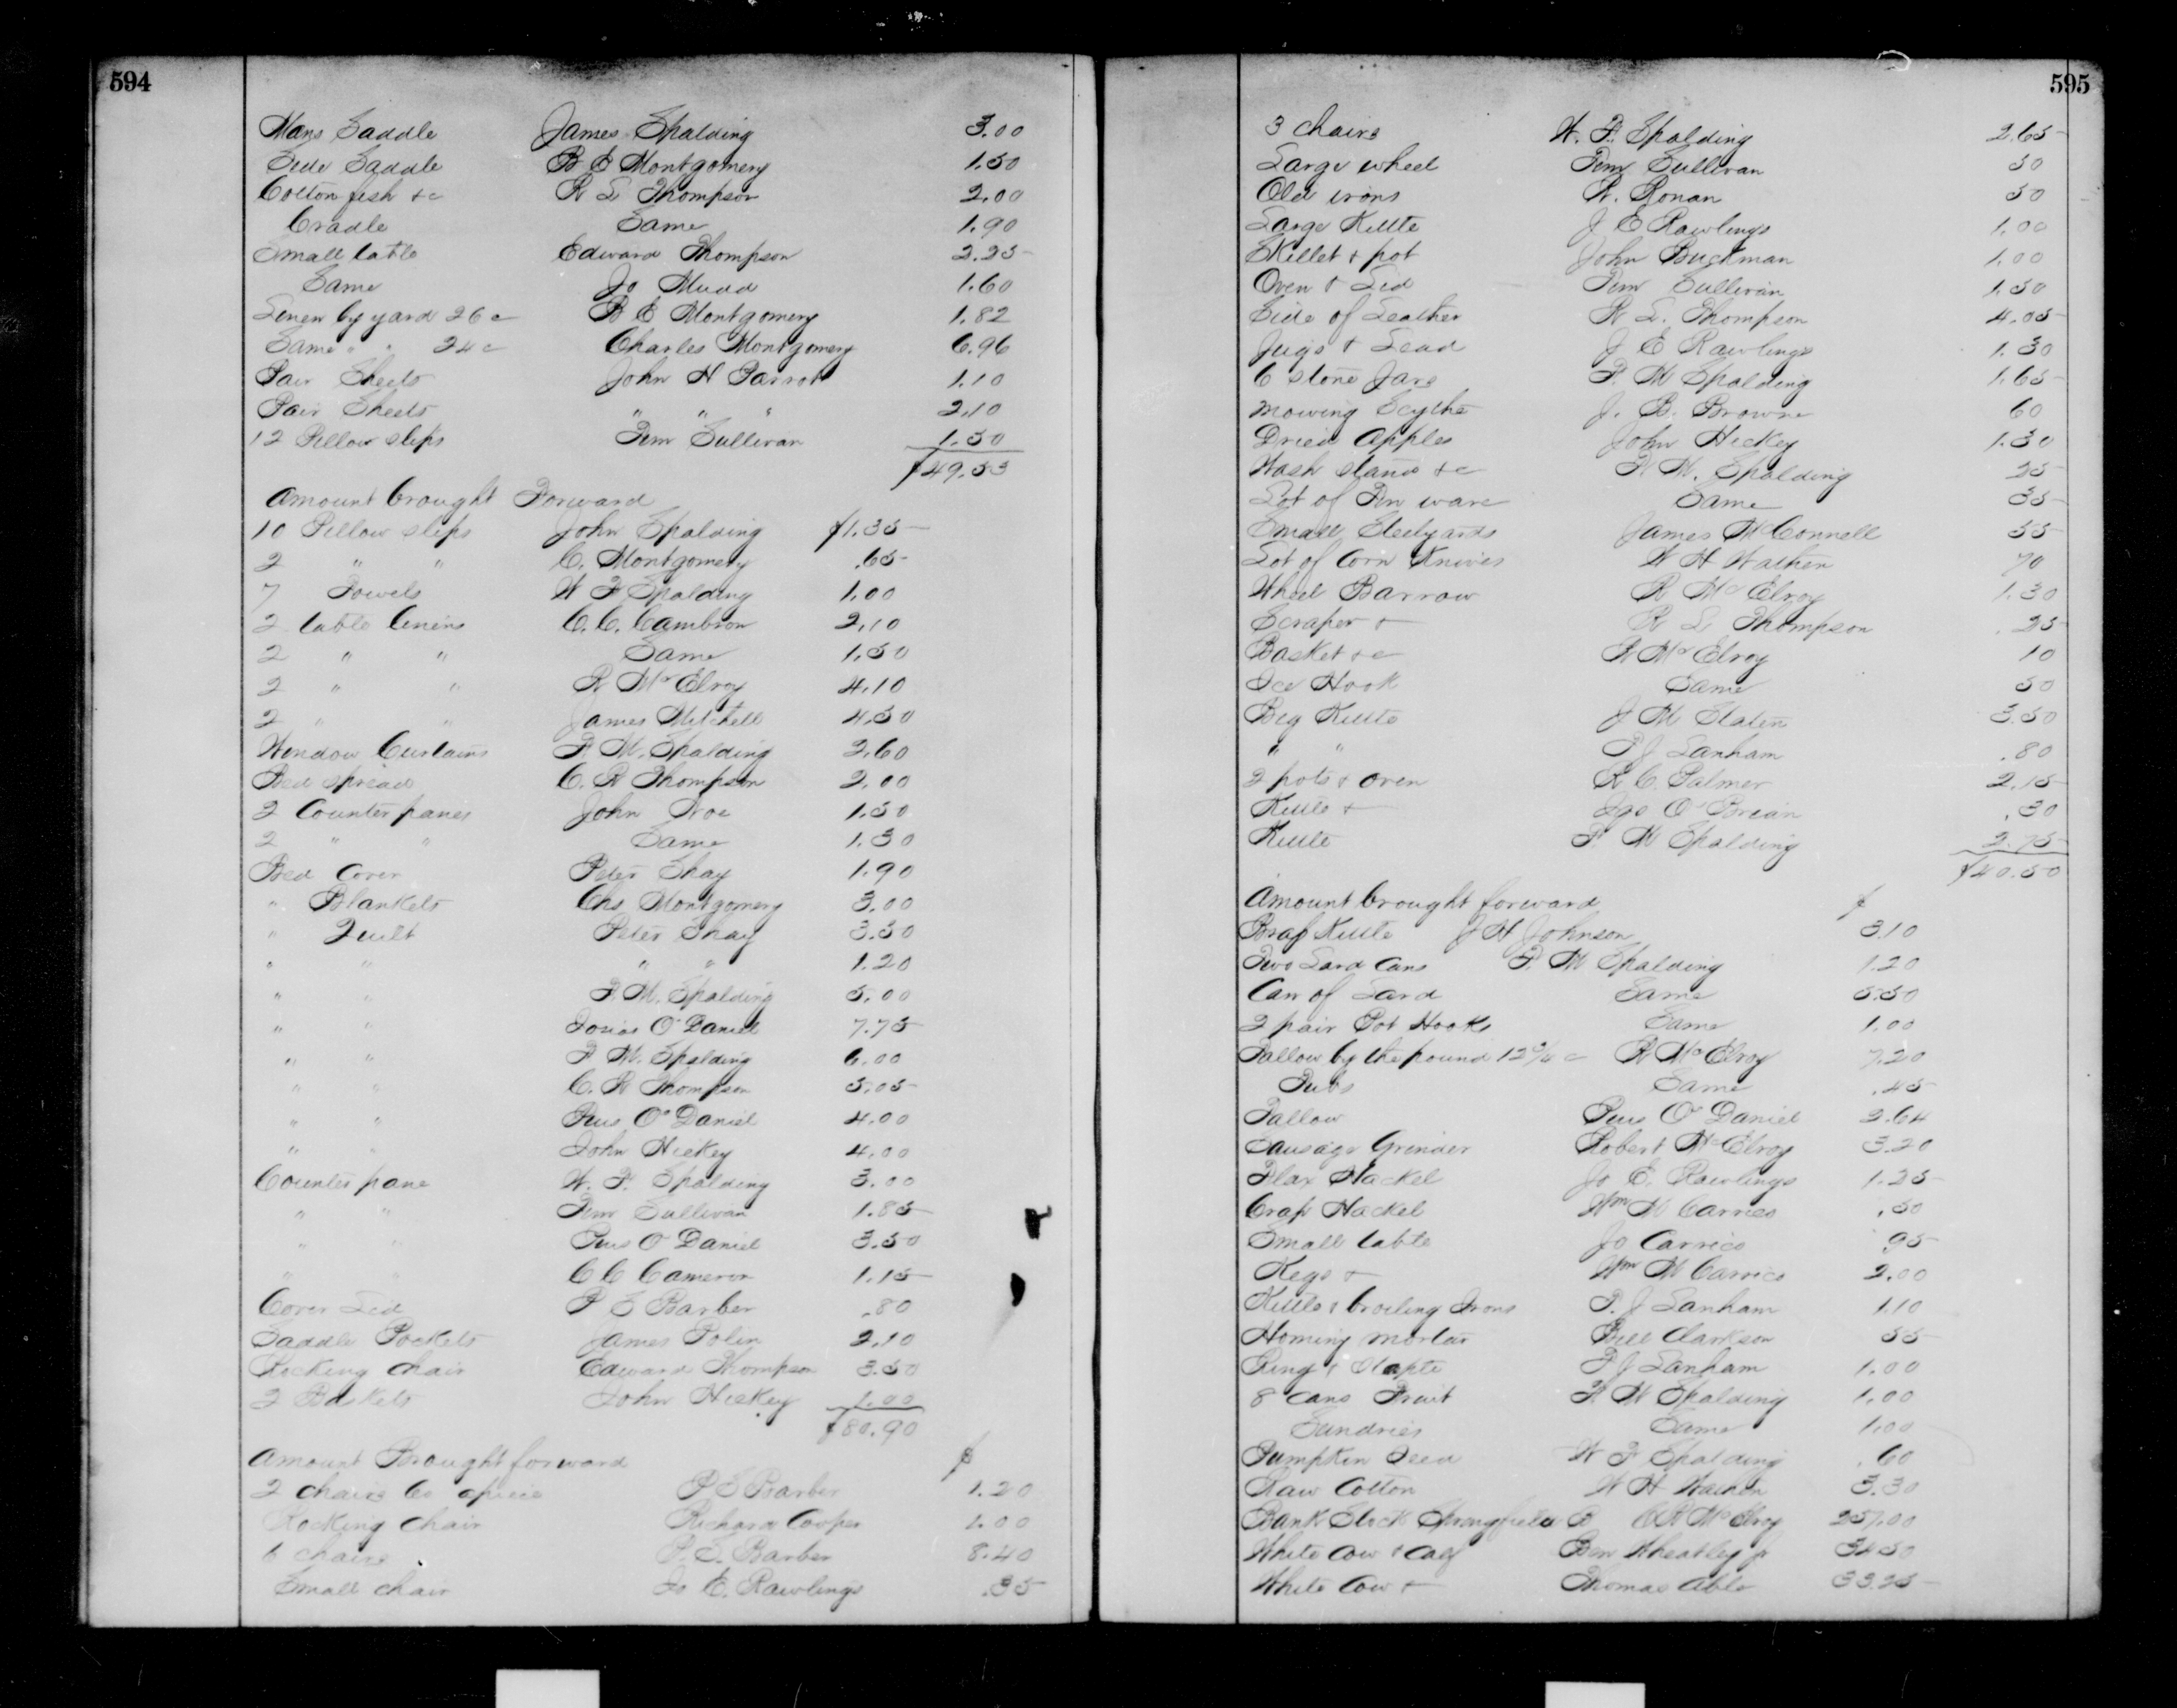 594
Mans Saddle James Spalding 3.00
Side Saddle B E Montgomery 1.50
Cotton fish &c R L Thompson 2.00
Cradle Same 1.90
Small table Edward Thompson 2.25
Same Jo Mudd 1.60
Linen by yard 26 c B E Montgomery 1.82
Same " " 24 c Charles Montgomery 6.96
Pair Sheets John H Parrott 1.10
Pair Sheets " " " 2.10
12 Pillow slips Tim Sullivan 1.50
$49.53
Amount brought Forward
10 Pillow slips John Spalding $1.35
2 " " C. Montgomery .65
7 Towels W F Spalding 1.00
2 table linens C. C. Cambron 2.10
2 " " Same 1.50
2 " " R McElroy 4.10
2 " " James Mitchell 4.50
Window Curtains F M. Spalding 2.60
Bed spread C. R Thompson 2.00
2 Counterpanes John Noe 1.50
2 " " Same 1.30
Bed Cover Peter Shay 1.90
" Blankets Chs Montgomery 3.00
" Quilt Peter Shay 3.50
" " " " 1.20
" " F. M. Spalding 5.00
" " Josias O'Daniel 7.75
" " F M. Spalding 6.00
" " C. R Thompson 5.05
" " Pius O'Daniel 4.00
" " John Hickey 4.00
Counterpane W. F. Spalding 3.00
" " Tim Sullivan 1.85
" " Pius O Daniel 3.50
" " C C Cameron 1.15
Cover Lid P S Barber .80
Saddle Pockets James Polin 2.10
Rocking chair Edward Thompson 3.50
2 Baskets John Hickey 1.00
$80.90
Amount Brought forward $
2 chairs 60 apiece P S Barber 1.20
Rocking Chair Richard Cooper 1.00
6 chairs P. S. Barber 8.40
Small chair Jo E. Rawlings .35
595
3 chairs W. F. Spalding 2.65
Large wheel Tim Sullivan 50
Old irons R. Ronan 50
Large Kettle J E Rawlings 1.00
Skillet & pot John Buckman 1.00
Oven & Lid Tim Sullivan 1.50
Side of Leather R L. Thompson 4.05
Jugs & Lead J E Rawlings 1.30
6 stone Jars F. M Spalding 1.65
mowing Scythe J. B. Browne 60
Dried Apples John Hickey 1.30
Wash stand &c F. M. Spalding 25
Lot of Tin ware Same 35
Small Steelyards James McConnell 55
Lot of Corn Knives W H Wathen 70
Wheel Barrow R McElroy 1.30
Scraper & R L Thompson .25
Basket &c R McElroy 10
Ice Hook Same 50
Big Kettle J M Slaten 3.50
" " P J Lanham .80
2 pots & oven R C Palmer 2.15
Kettle & Igs O'Brian .30
Kettle F M Spalding 2.75
$40.50
Amount brought forward $
Brass Kettle J H Johnson 3.10
Two Lard Cans F. M Spalding 1.20
Can of Lard Same 5.50
2 pair Pot Hooks Same 1.00
Tallow by the pound 12 3/4 c R McElroy 7.20
Tubs Same .45
Tallow Pius O'Daniel 2.64
Sausage Grinder Robert McElroy 3.20
Flax Hackel Jo E. Rawlings 1.25
Hackel Wm M Carrico .50
Small table Jo Carrico 95
Kegs & Wm M Carrico 2.00
Kettle & broiling Irons P. J Lanham 1.10
Hominy mortar Bill Clarkson 55
Ring & Staple P J Lanham 1.00
8 cans Fruit F M Spalding 1.00
Sundries Same 1.00
Pumpkin Seed W F Spalding .60
Raw Cotton W H Wathen 3.30
Bank Stock Springfield B C R McElroy 257.00
White Cow & Calf Ben Wheatley jr 34.50
White Cow & Thomas Able 33.25